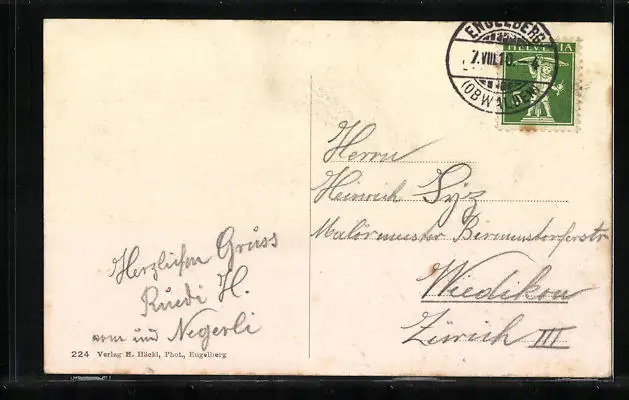 ENGELBERG
7.VIII.10.
(OBWALDEN)
HELVETIA
Herrn
Heinrich Syz
Malermeister Birmensdorferstr
Wiedikon
Zürich III
Herzlichen Gruss
Ruedi H.
und Negerli
224 Verlag H. Häcki, Phot., Engelberg